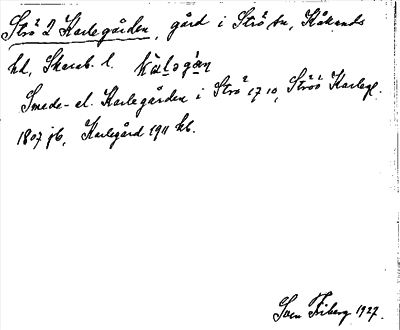 Strö 2 Karlegården, gård i Strö sn, Kåkinds
hd, Skarab. l. ka̍ləgån
Smede- el. Karlegården i Strö 1710, Ströö Karlegl.
1807 jb, Karlegård 1911 kb.
Sven Friberg 1927.